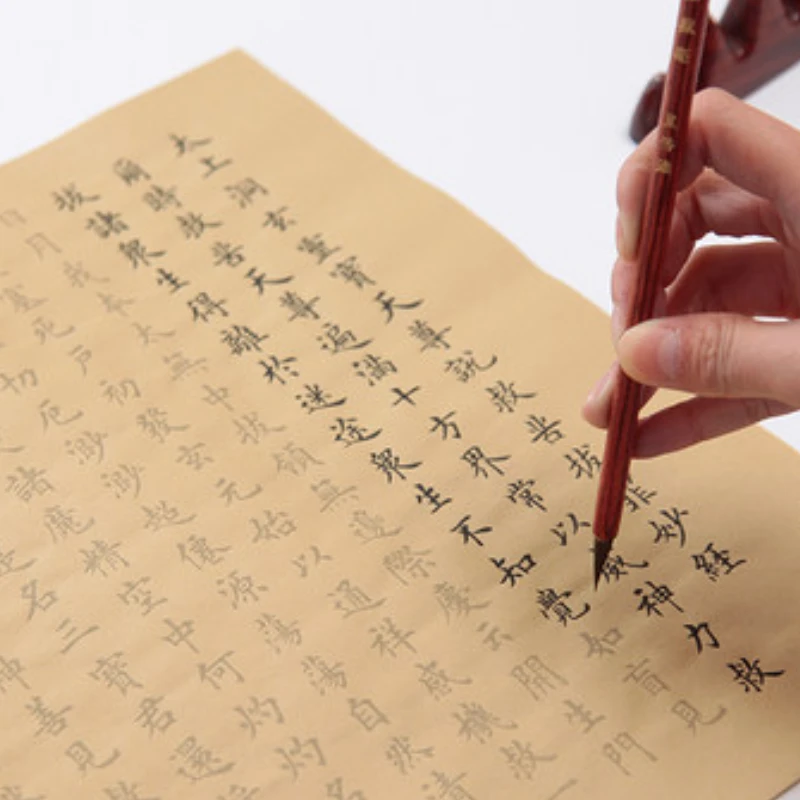 太上洞玄靈寶天尊說救苦拔罪妙經
爾時救苦天尊遍滿十方界常以威神力救
拔諸衆生得離於迷途衆生不知覺如盲見
日月我本太無中拔領無邊際慶云開生門
塞死戶初發玄元始以通祥感機救一
切厄渺渺超僊源蕩蕩自然清
諸魔精空中何灼灼名
是名三寶君還
神善見救